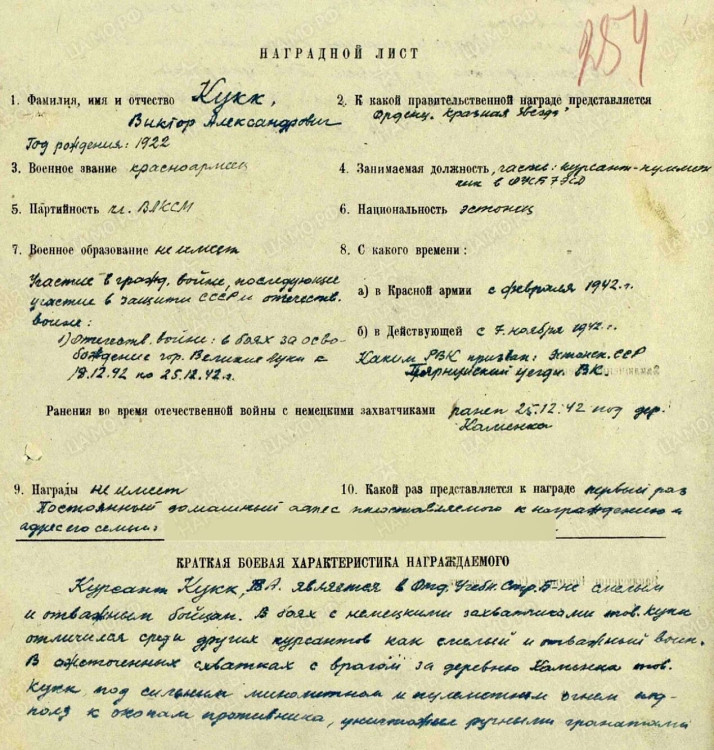 254
НАГРАДНОЙ ЛИСТ
1. Фамилия, имя и отчество Кукк,
Виктор Александрович
Год рождения: 1922
2. К какой правительственной награде представляется
Орденц. Красная Звезда
3. Военное звание красноармеец
4. Занимаемая должность, часть: курсант-пулемет
чик в
5. Партийность чл. ВЛКСМ
6. Национальность эстонец
7. Военное образование не имеет
Участие в гражд. войне, последующие
участие в защити СССР и отечеств.
войне:
1) Отечеств. войне: в боях за осво-
бождение гор. Великие Луки с
19.12.42 по 25.12.42 г.
8. С какого времени:
а) в Красной армии с февраля 1942 г.
б) в Действующей с 7. ноября 1942 г.
Каким РВК призван: Эстонск. ССР
уезды. ВК.
Ранения во время отечественной войны с немецкими захватчиками ранен 25.12.42 под дер.
Каменка
9. Награды не имеет
10. Какой раз представляется к награде первый раз
Постоянный домашный адрес представляемого к награждению и
адрес его семьи:
КРАТКАЯ БОЕВАЯ ХАРАКТЕРИСТИКА НАГРАЖДАЕМОГО
Курсант Кукк, В.А. является в Отд. Учебн. Стр. Б-не смелым
и отважным бойцом. В боях с немецкими захватчиками тов. Кукк
отличился среди других курсантов как смелый и отважный воин.
В ожсточенных схватках с врагом за деревню Каменка тов.
Кукк под сильным минометным и пулеметным огнем под-
полз к окопам противника, уничтожил ручными гранатами